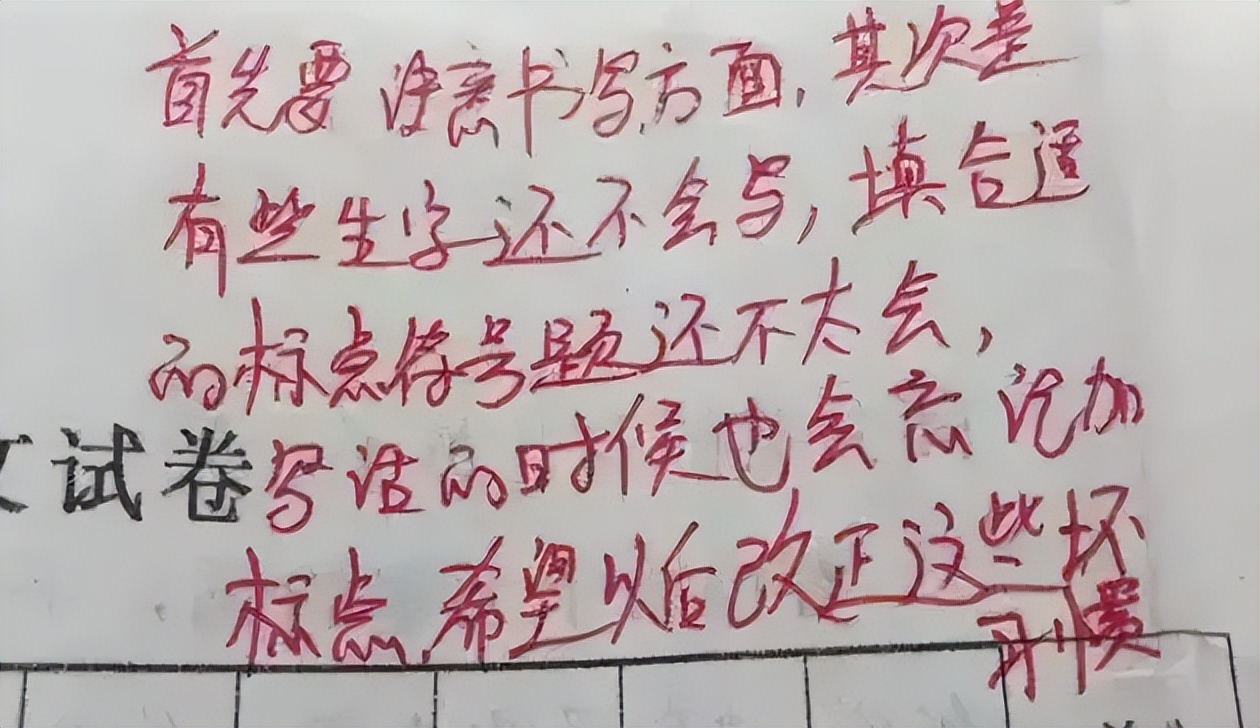 首先要注意书写方面，其次是
有些生字还不会写，填合适
的标点符号题还不太会，
试卷
写话的时候也会忘记加
标点，希望以后改正这些坏
习惯